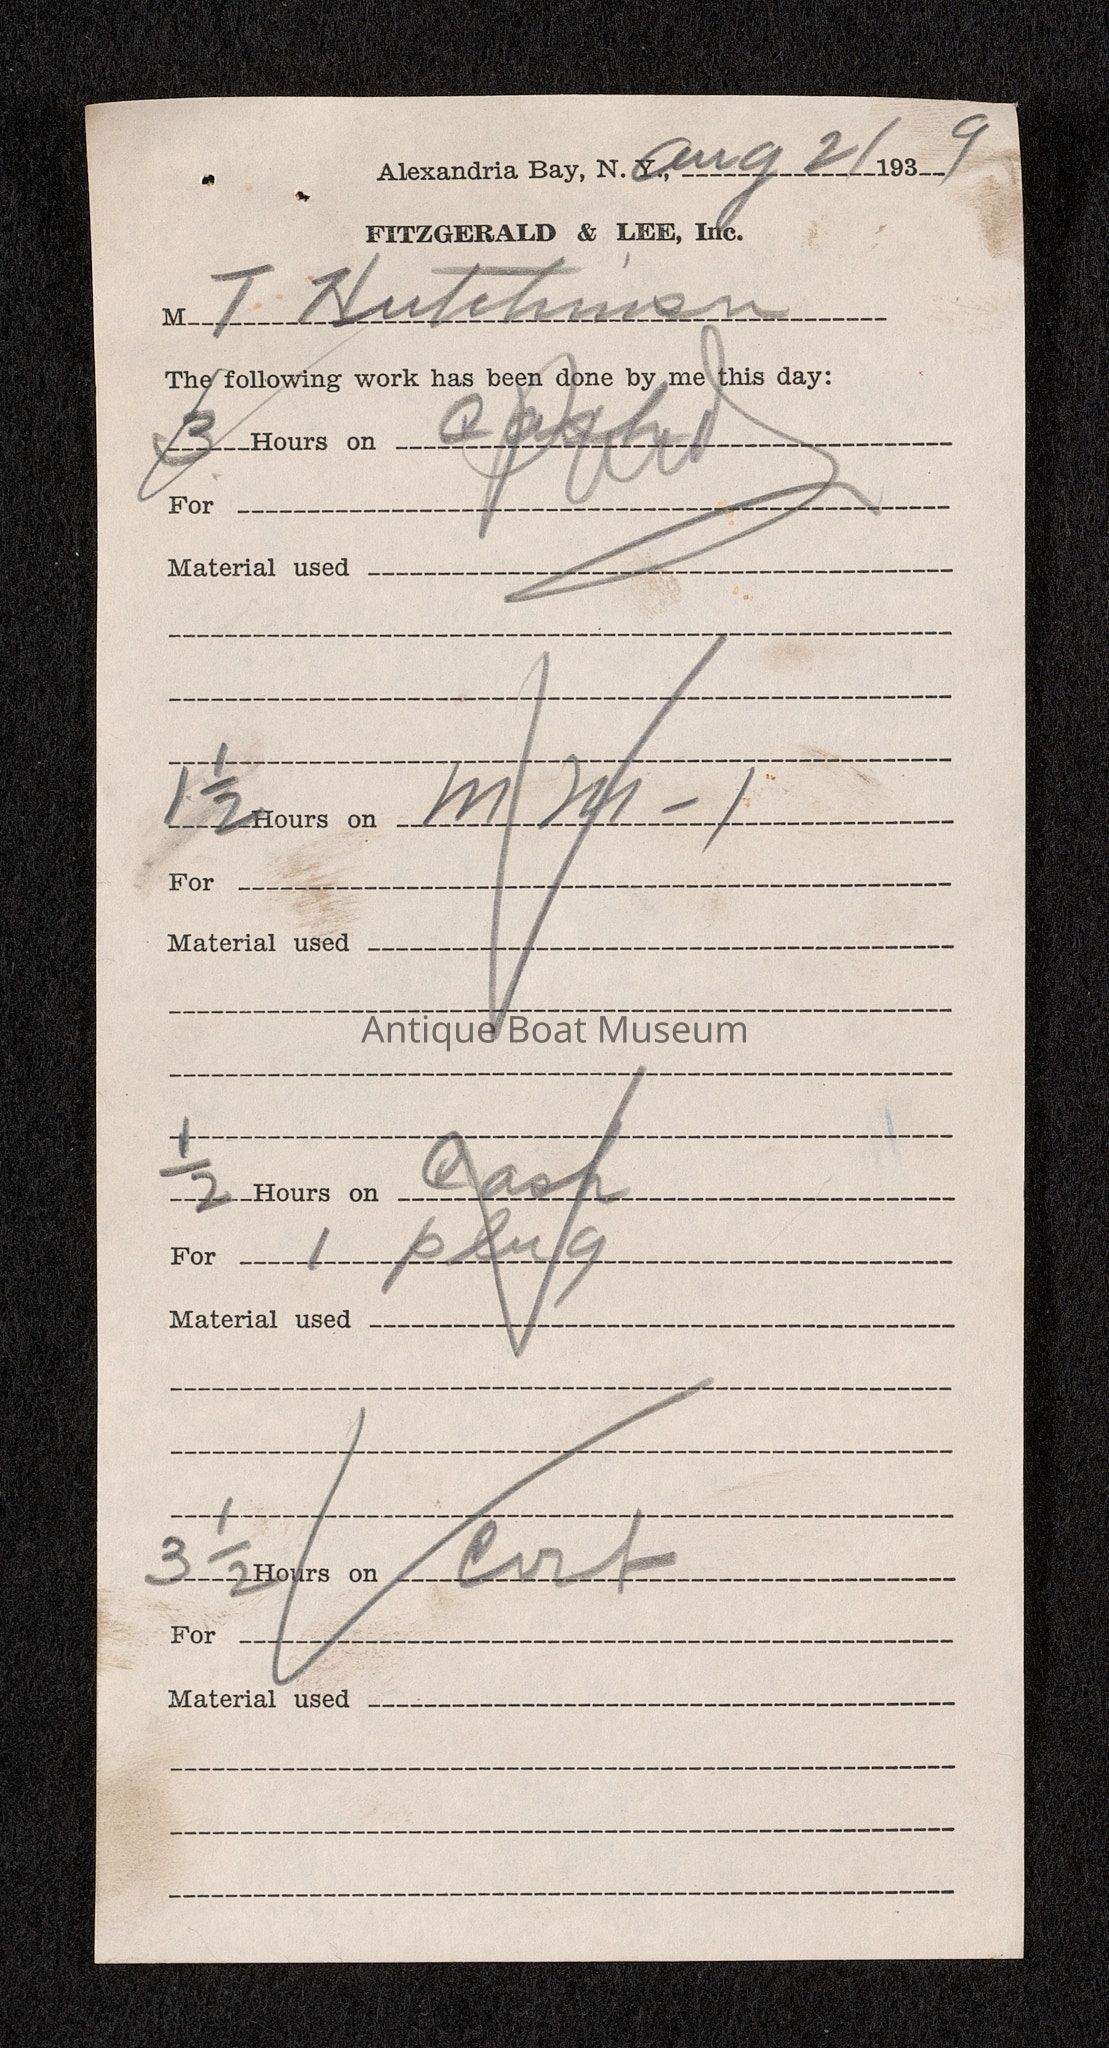 Alexandria Bay, N. Y., Aug 21 1939
FITZGERALD & LEE, Inc.
M T Hutchinson
The following work has been done by me this day:
3 Hours on
For
Material used
1 1/2 Hours on M M - 1
For
Material used
Antique Boat Museum
1/2 Hours on Cash
For 1 plug
Material used
3 1/2 Hours on
For
Material used